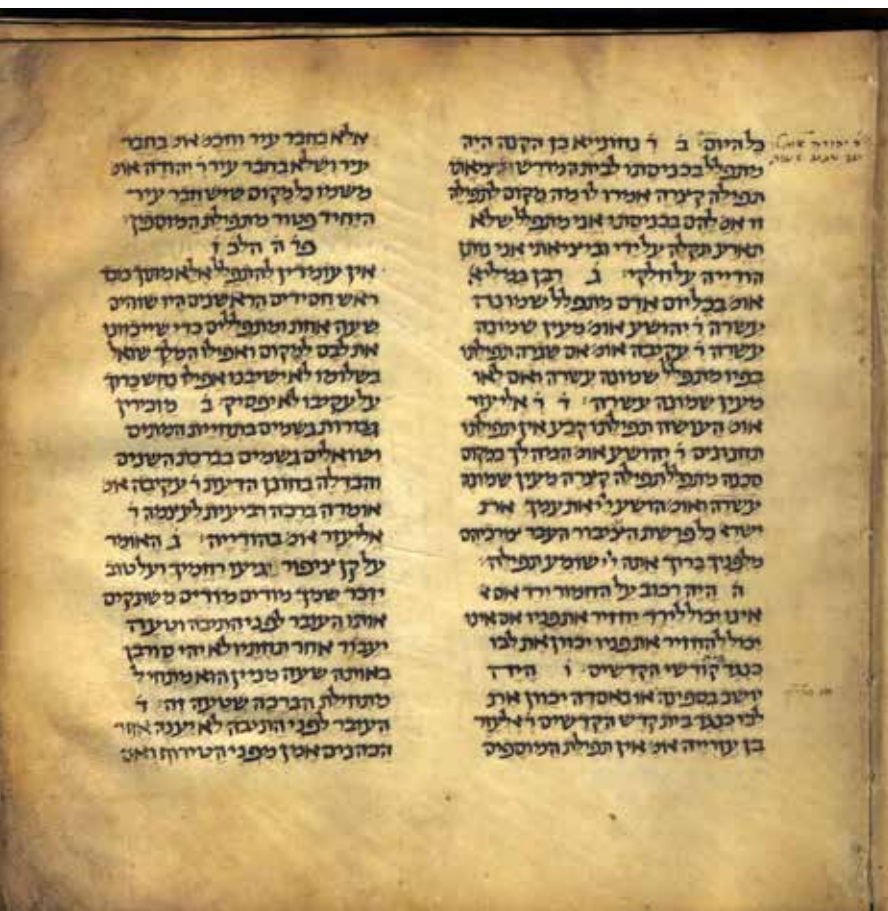 כל היום׳ ב ר׳ נחונייא בן הקנה היה
מתפלל בכניסתו לבית המדרש וביציאתו
תפילה קצרה אמרו לו מה מקום לתפילה
זו אמ׳ להם בכניסתי אני מתפלל שלא
תארע תקלה על ידי וביציאתי אני נותן
הודייה על חלקי׳ ג רבן גמליא׳
אומ׳ בכל יום אדם מתפלל שמונה
עשרה ר׳ יהושע אומ׳ מעין שמונה
עשרה ר׳ עקיבה אומ׳ אם שגרה תפילתו
בפיו מתפלל שמונה עשרה ואם לאו
מעין שמונה עשרה׳ ד ר׳ אליעזר
אומ׳ העושה תפילתו קבע אין תפילתו
תחנונים ר׳ יהושע אומ׳ המהלך במקום
סכנה מתפלל תפילה קצרה מעין שמונה
עשרה ואומ׳ הושע ייי את עמך את
ישרא׳ כל פרשת הציבור העבר צרכיהם
מלפניך ברוך אתה ייי שומע תפילה׳
ה היה רכוב על החמור ירד אם
אינו יכול לירד יחזיר את פניו אם אינו
יכול להחזיר את פניו יכוון את לבו
כנגד קודשי הקדשים׳ ו היה
יושב בספינה או באסדה יכוון את
לבו כנגד בית קדש הקדשים ר׳ אלעזר
בן עזרייה אומ׳ אין תפילת המוספים
אלא בחבר עיר וחכמ׳ אומ׳ בחבר
עיר ושלא בחבר עיר ר׳ יהודה אומ׳
משמו כל מקום שיש חבר עיר
היחיד פטור מתפילת המוספין׳
פר׳ ה הלכ׳ ז
אין עומדין להתפלל אלא מתוך
ראש חסידים הראשנים היו שוהים
שעה אחת ומתפללים כדי שייכוונו
את לבם למקום ואפילו המלך שואל
בשלומו לא ישיבנו אפילו נחש כרוך
על עקיבו לא יפסיק׳ ב מזכירין
גבורות גשמים בתחיית המתים
ושואלים גשמים בברכת השנים
והבדלה בחונן הדעת ר׳ עקיבה אומ׳
אומרה ברכה רביעית לעצמה ר׳
אליעזר אומ׳ בהודייה׳ ג האומר
על קן ציפור יגיעו רחמיך ועל טוב
יזכר שמך מודים מודים משתקים
אותו העובר לפני התיבה וטעה
יעבור אחר תחתיו ולא יהי סורבן
באותה שעה מניין הוא מתחיל
מתחילת הברכה שטעה זה׳ ד
העובר לפני התיבה לא יענה אחר
הכהנים אמן מפני הטירוף ואם